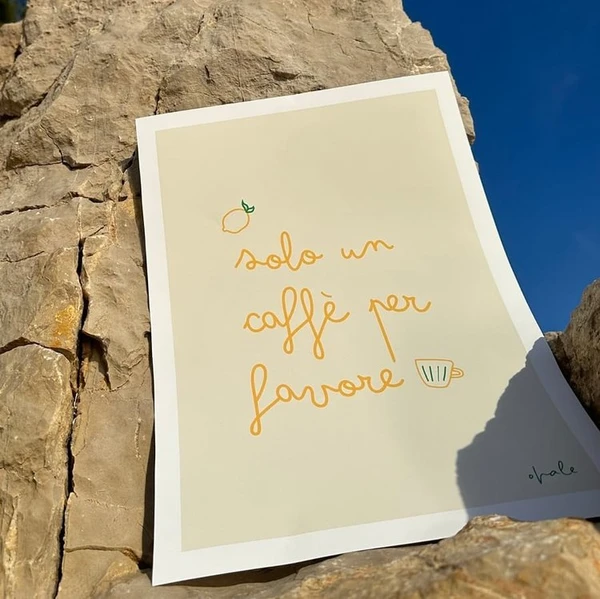 solo un
caffè per
favore
opale